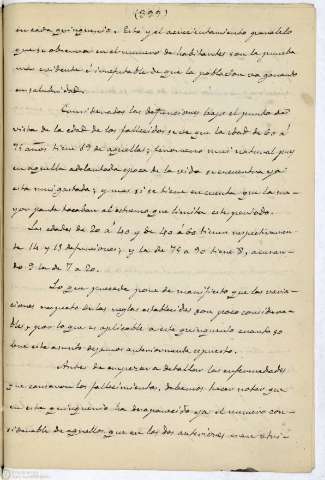 (399)
en cada quinquenio. Esto y el acrecentamiento paralelo
que se observa en el numero de habitantes son la prueba
mas evidente é irrefutable de que la poblacion va ganando
en salubridad.
Consideradas las defunciones bajo el punto de
vista de la edad de los fallecidos se ve que la edad de 60 á
75 años tiene 19 de aquellas; fenomeno mui natural pues
en aquella adelantada época de la vida se encuentra ya
esta mui gastada; y mas si se tiene en cuenta que la ma-
yor parte tocaban al estremo que limita este periodo.
Las edades de 20 á 40 y de 40 á 60 tienen respectivamen-
te 14 y 13 defunciones; y la de 75 a 90 tiene 8, acusan-
do 9 la de 7 a 20.
Lo que precede pone de manifiesto que las varia-
ciones respecto de las reglas establecidas son poco considera-
bles, y por lo que es aplicable a este quinquenio cuanto so-
bre este asunto dejamos anteriormente espuesto.
Antes de empezar a detallar las enfermedades
que causaron los fallecimientos, debemos hacer notar que
en este quinquenio ha desaparecido ya el numero con-
siderable de aquellos, que en los dos anteriores eran atri-